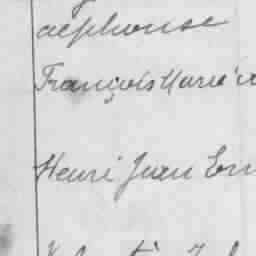 alphonse
François Marie
Henri Jean Em